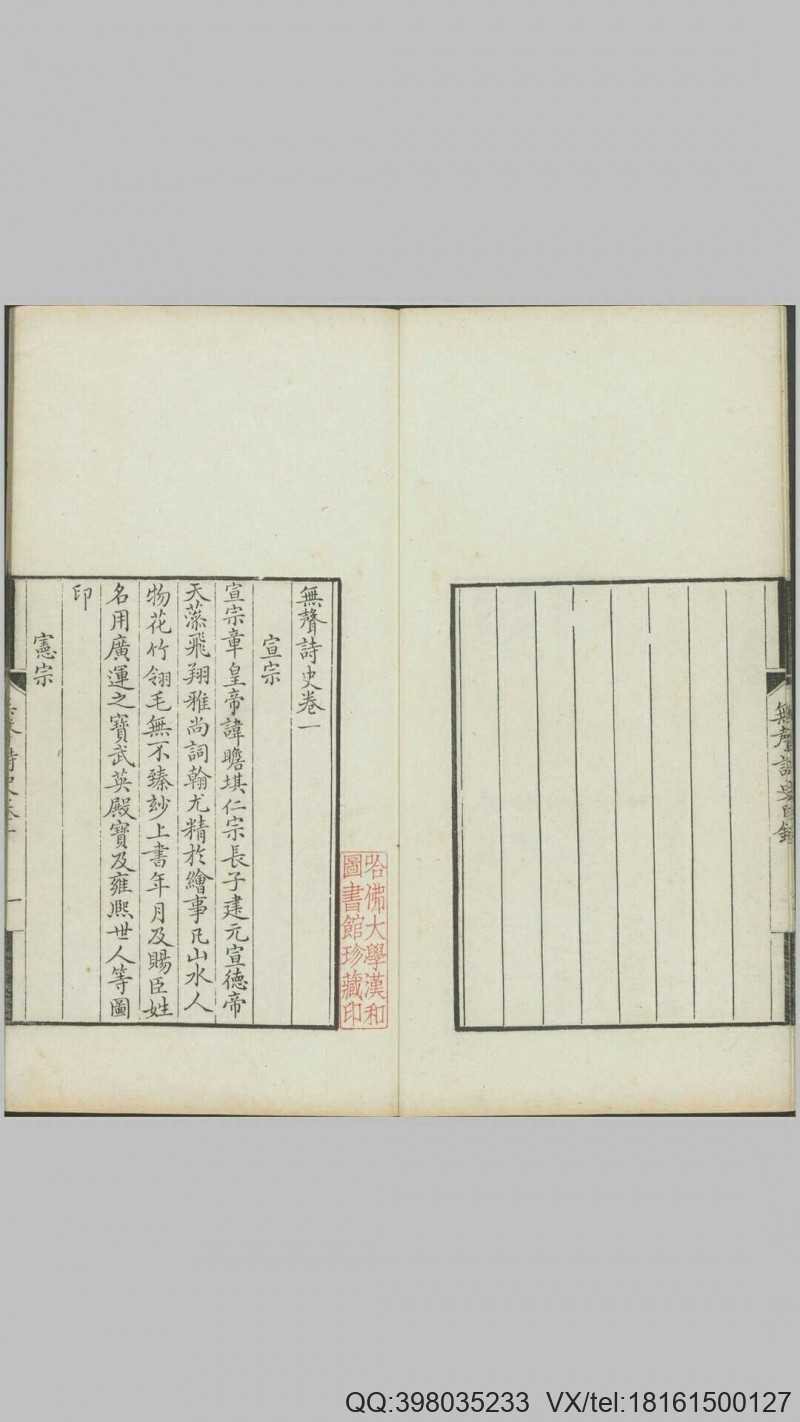 無聲詩史目錄
無聲詩史卷一
宣宗
宣宗章皇帝諱瞻堪仁宗長子建元宣德帝
天藻飛翔雅尚詞翰尤精於繪事凡山水人
物花竹翎毛無不臻玅上書年月及賜臣姓
名用廣運之寶武英殿寶及雍熙世人等圖
印
憲宗
哈佛大學漢和
圖書館珍藏印
QQ:398035233 VX/tel:18161500127